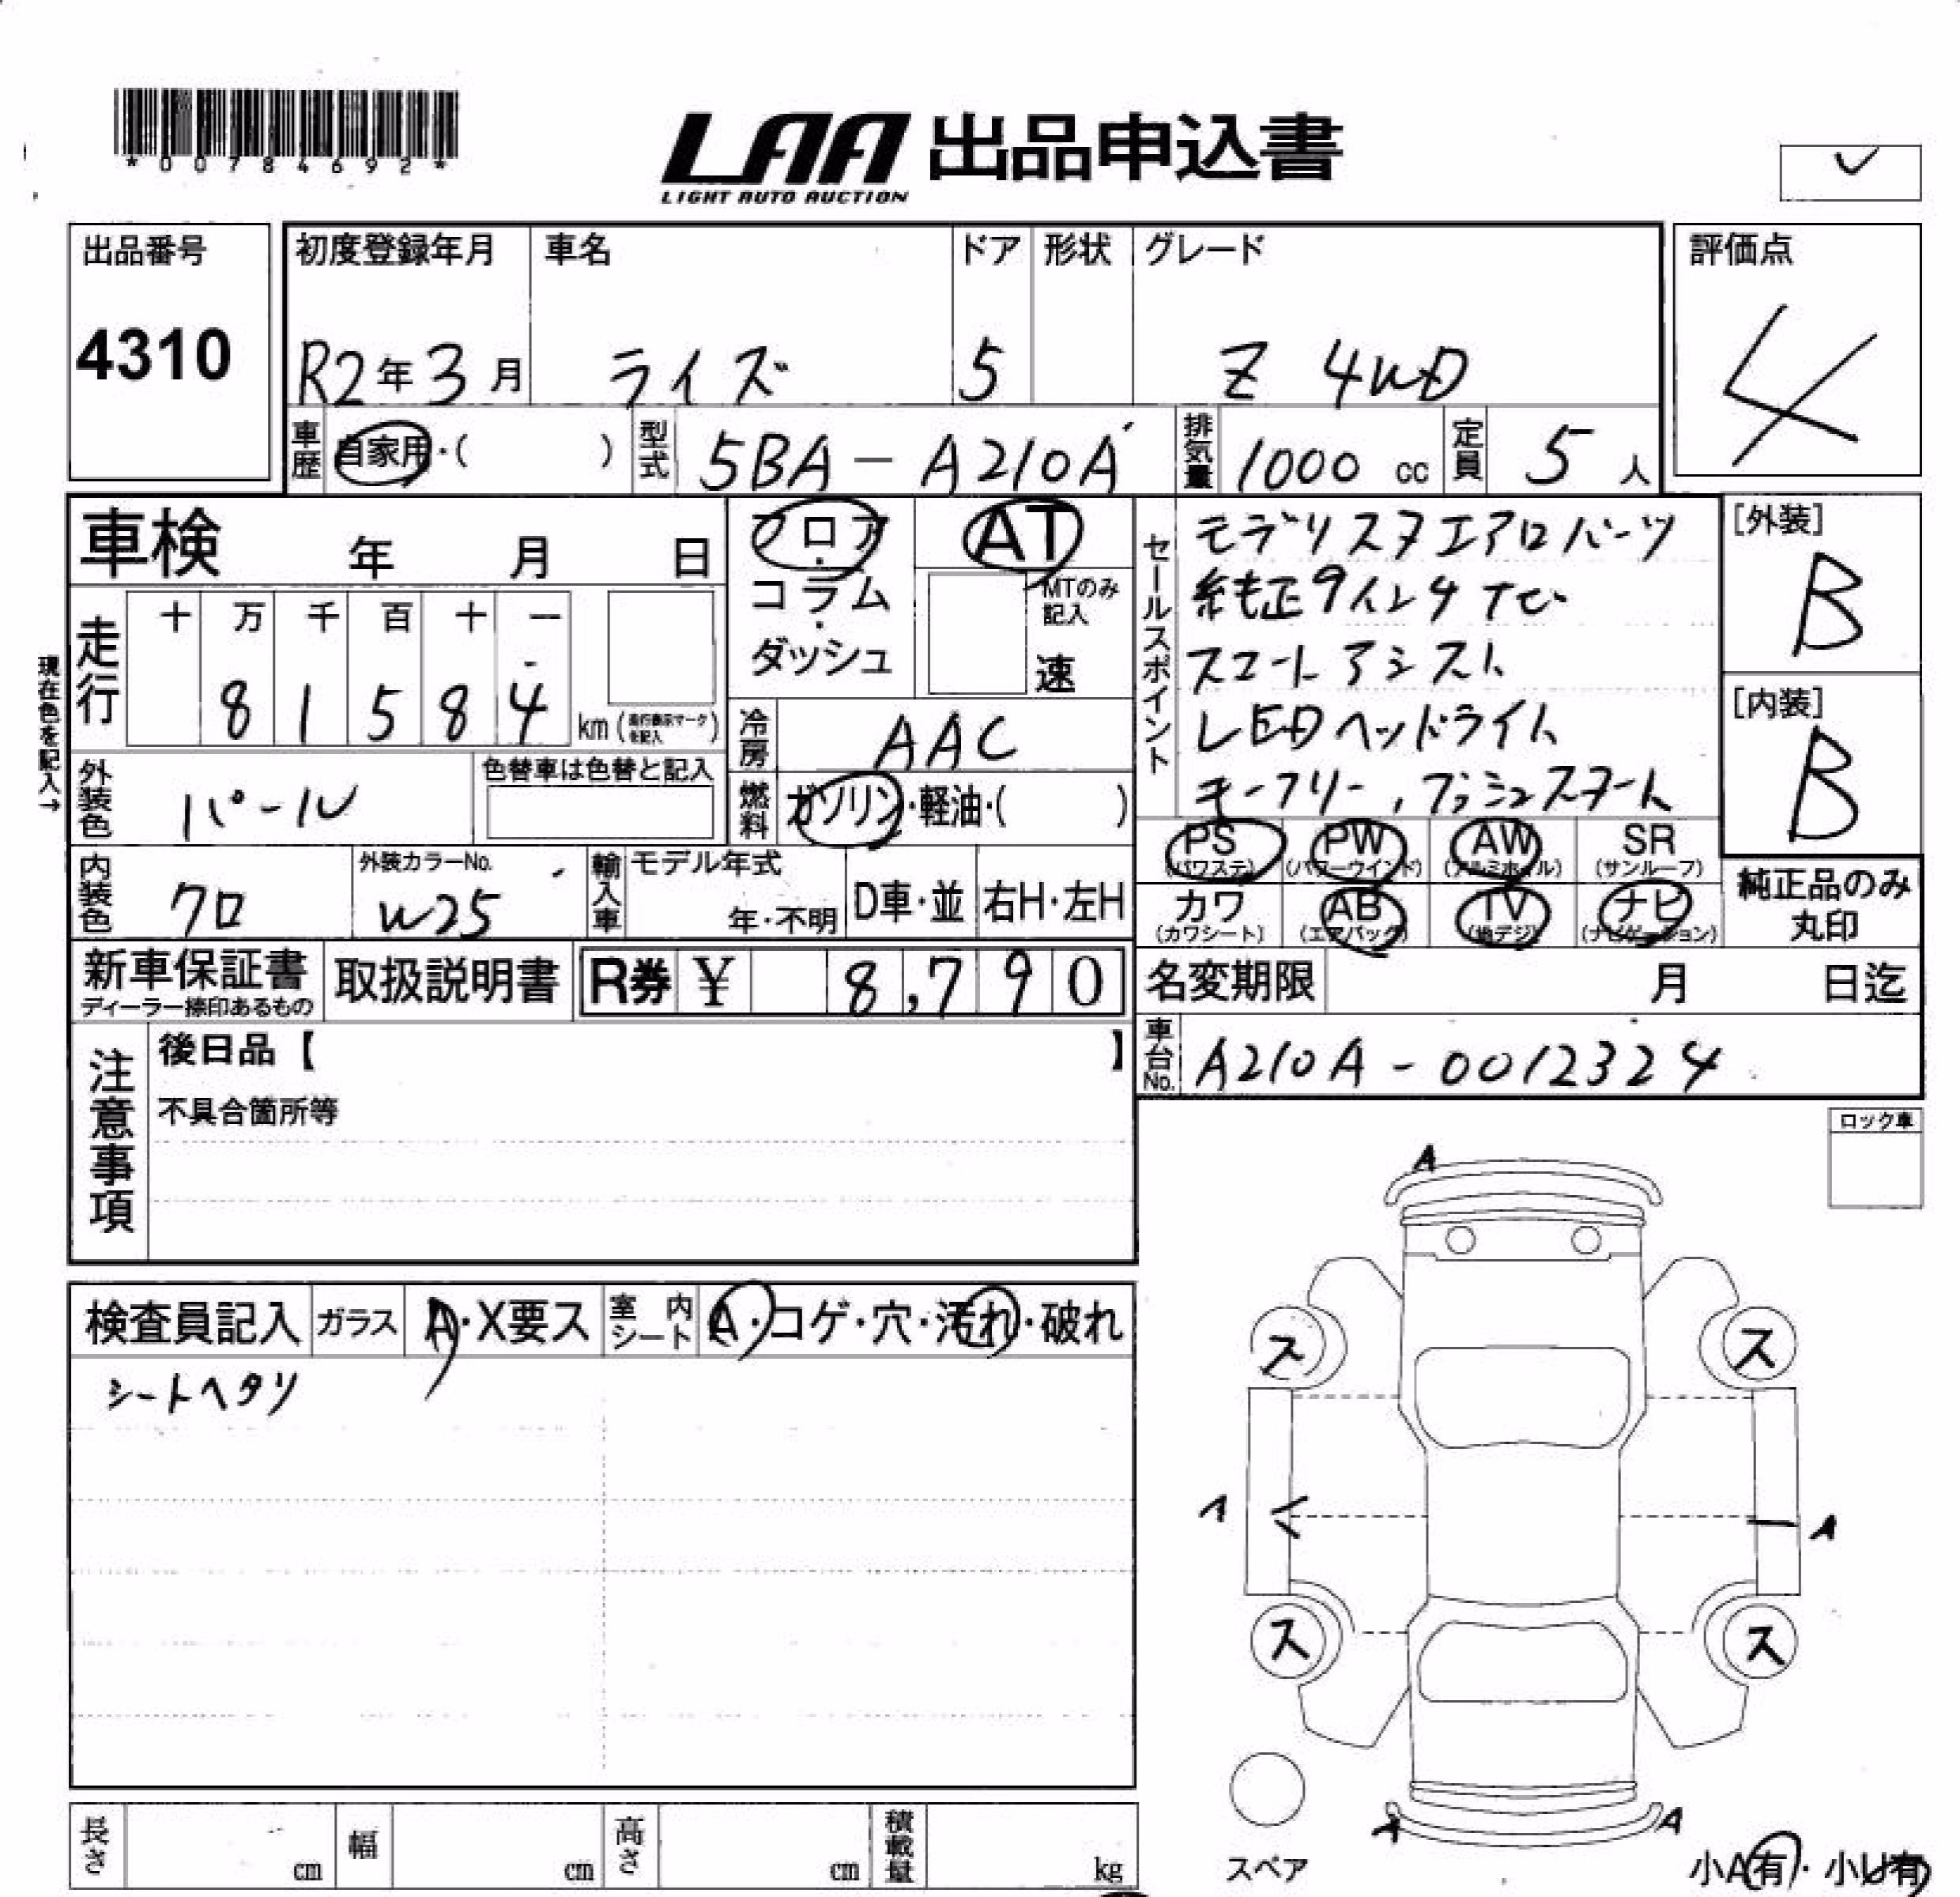 *00784692*
LAA 出品申込書
LIGHT AUTO AUCTION
出品番号
4310
初度登録年月 車名 ドア 形状 グレード
R2年3月 ライズ 5 Z 4WD
評価点
4
車歴 自家用・( ) 型式 5BA-A210A 排気量 1000 cc 定員 5 人
車検 年 月 日
フロア・コラム・ダッシュ
AT
MTのみ記入
速
セールスポイント
モデリスタエアロパーツ
純正9インチナビ
スマートアシスト
LEDヘッドライト
キーフリー,プッシュスタート
[外装]
B
[内装]
B
現在色を記入→
走行 十 万 千 百 十 一
8 1 5 8 4 km (走行表示マークを記入)
冷房 AAC
外装色 パール 色替車は色替と記入
燃料 ガソリン・軽油・( )
PS (パワステ) PW (パワーウインド) AW (アルミホイル) SR (サンルーフ)
カワ (カワシート) AB (エアバッグ) TV (地デジ) ナビ (ナビゲーション)
純正品のみ丸印
内装色 クロ 外装カラーNo. W25 輸入車 モデル年式 年・不明 D車・並 右H・左H
新車保証書 ディーラー捺印あるもの 取扱説明書 R券 ¥ 8,790
名変期限 月 日迄
車台No. A210A-0012324
注意事項
後日品【 】
不具合箇所等
ロック車
検査員記入 ガラス A・X要ス 室内シート A・コゲ・穴・汚れ・破れ
シートヘタリ
A
ス ス
A A
ス ス
A A
スペア
小A有・小U有
長さ cm 幅 cm 高さ cm 積載量 kg